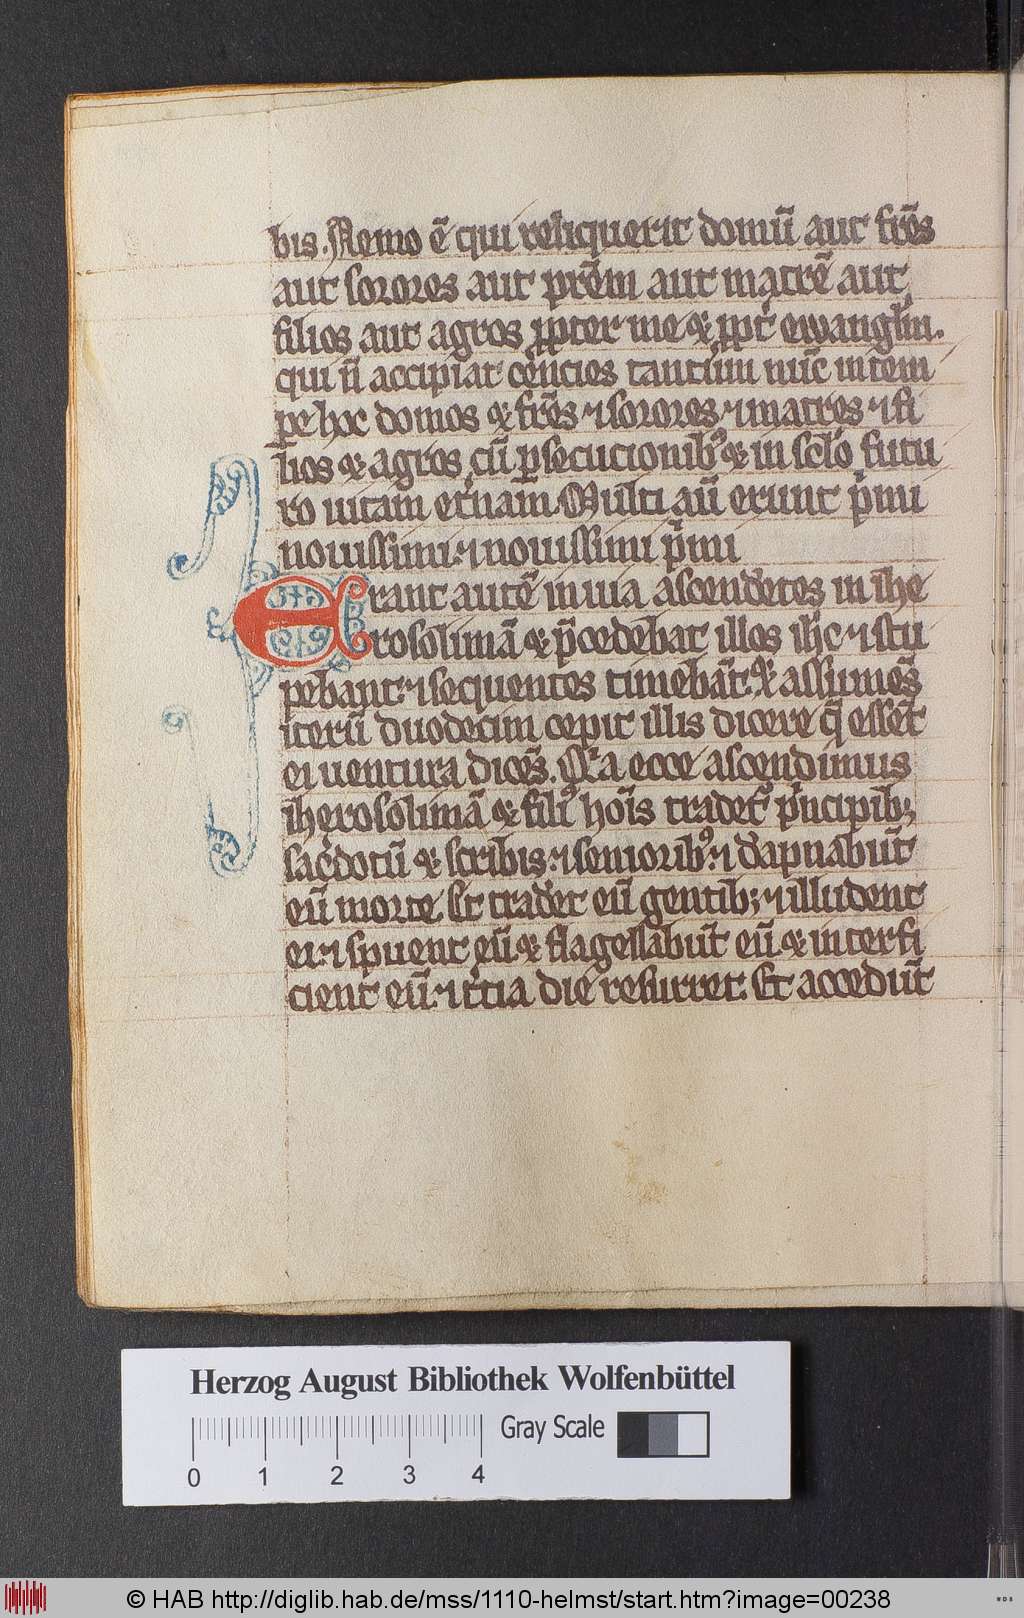 bis. Nemo ē qui reliquerit domū aut fr̄es
aut sorores aut pr̄em aut matrē aut
filios aut agros ꝓpter me & ꝓpt̓ ewangl̄m.
qui n̄ accipiat cēncies tantum nūc in tem
pe hoc domos & fr̄es ⁊ sorores ⁊ matres ⁊ fi
lios & agros cū ꝑsecucionibꝰ & in sc̄lo futu
ro uitam et̓nam. Multi aū erunt p̓mi
nouissimi ⁊ nouissimi p̓mi
Erant autē in uia ascendētes in ihe
rosolimā & p̄cedebat illos ih̄c ⁊ stu
pebant ⁊ sequentes timebāt. & assumēs
iterū duodecim cepit illis dicere q̄ essēt
ei uentura dicēs. Q̓a ecce ascendimus
iherosolimā & filiꝰ hoīs tradet᷑ p̓ncipib;
sac̓dotū & scribis ⁊ senioribꝰ ⁊ dāpnabūt
eū morte. Et tradēt eū gentib; ⁊ illudent
ei ⁊ spuent eū & flagellabūt eū & interfi
cient eū ⁊ t̓cia die resurret. Et accedūt
Herzog August Bibliothek Wolfenbüttel
0 1 2 3 4 Gray Scale
© HAB http://diglib.hab.de/mss/1110-helmst/start.htm?image=00238